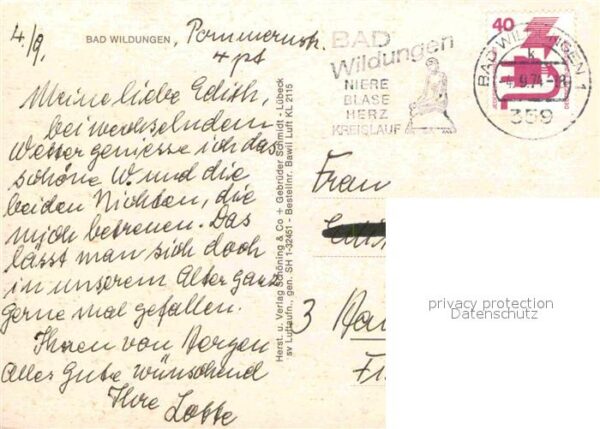 4./9.
BAD WILDUNGEN, Pommernstr.
4
Meine liebe Edith,
bei wechselndem
Wetter geniesse ich das
schöne W. und die
beiden Nichten, die
mich betreuen. Das
lässt man sich doch
in unserem Alter ganz
gerne mal gefallen.
Ihnen von Herzen
Alles Gute wünschend
Ihre Lotte
Herst. u. Verlag Schöning & Co + Gebrüder Schmidt - Lübeck
sv Luftaufn., gen. SH 1-32451 - Bestellnr. Bawil Luft KL 2115
BAD
Wildungen
NIERE
BLASE
HERZ
KREISLAUF
40
BAD WILDUNGEN 1
k
359
Frau
3
privacy protection
Datenschutz